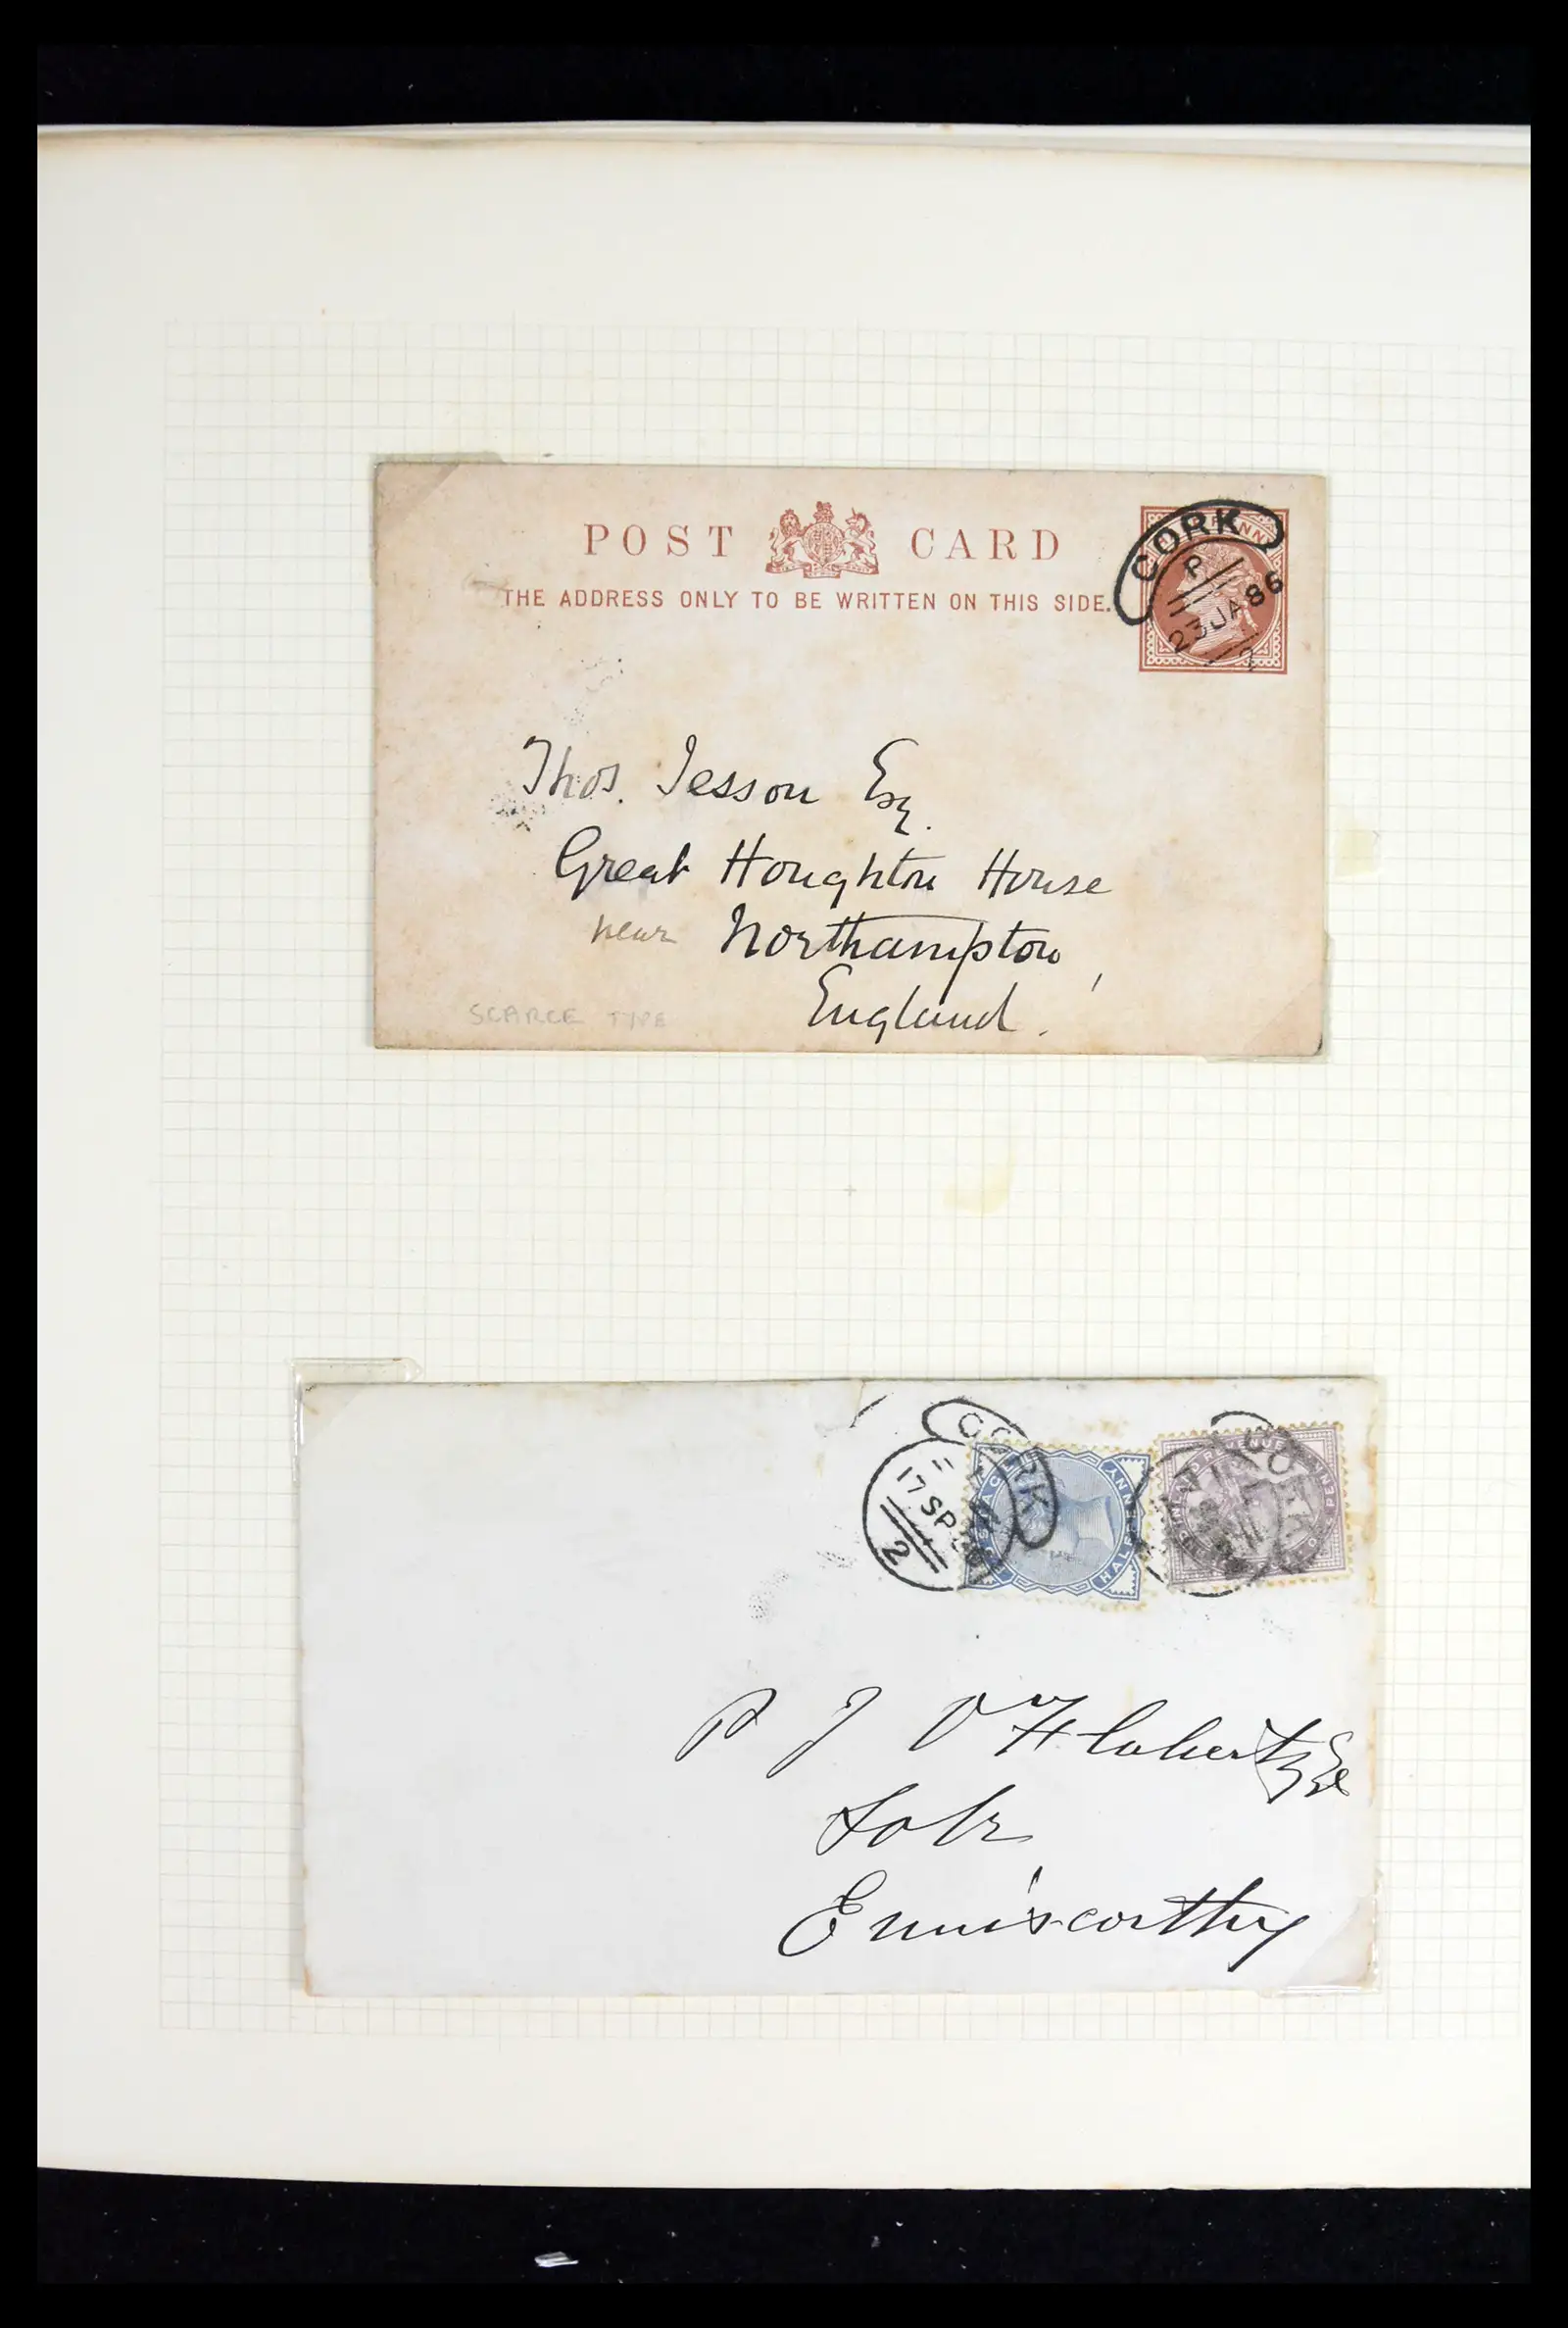 POST CARD
THE ADDRESS ONLY TO BE WRITTEN ON THIS SIDE.
CORK
P
23 JA 86
2
Thos. Jesson Esq.
Great Houghton House
near Northampton,
England.
SCARCE TYPE
CORK
17 SP
2
HALFPENNY
CORK
P J O'Flaherty Esq
Solr
Enniscorthy